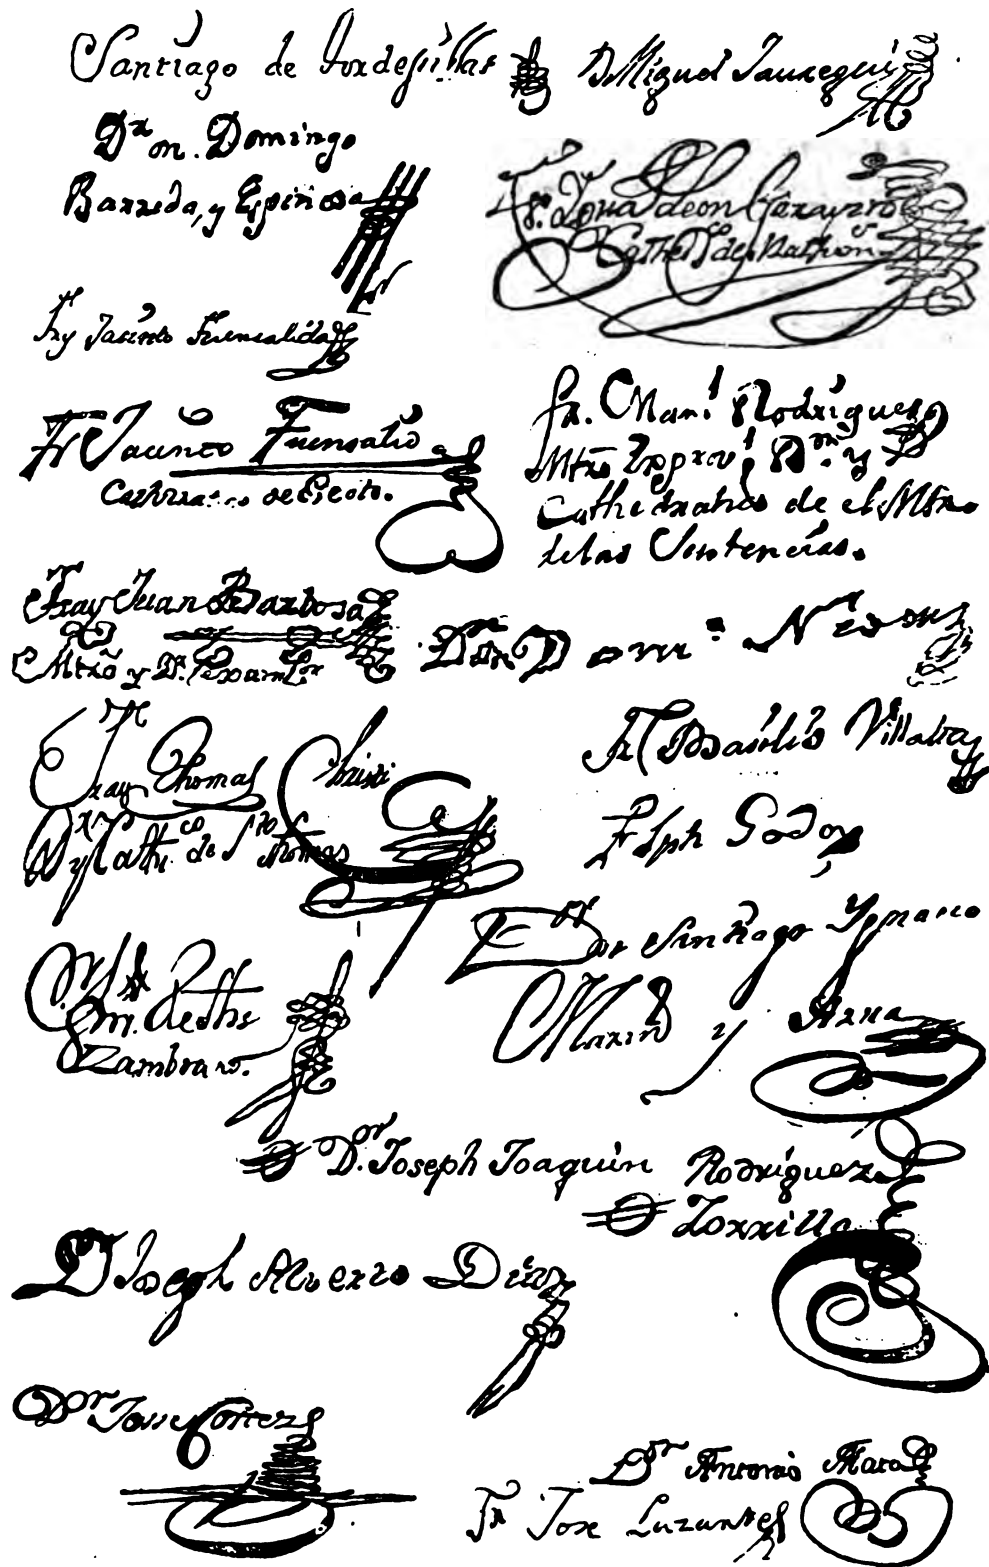 Santiago de Tordesillas
D Miguel Jauregui
Dr on. Domingo
Barreda, y Espinosa
Leon Garavito
Cathe.co de Mathem.
Fr Jacinto Fuensalida
Fr Jacinto Fuensalid
de Escoto.
fr. Man.l Rodriguez
Mtro y
Cathedratico de el Mtro
de las Sentencias.
Fray Juan de Barbosa
Mtro y Dr.
Don
Fr Basilio Villalva
Fray Thomas Christi
Dr y Cathe.co de Sto thomas
Fr Jph Godoy
Dor Santiago Ygnacio
Marin y Azua
Zambrano.
D.or Joseph Joaquin Rodriguez
Zorrilla
D Joseph Alverto Diaz
Dor Jose Cortez
Dor Antonio Mata
Fr Jose Luzantes